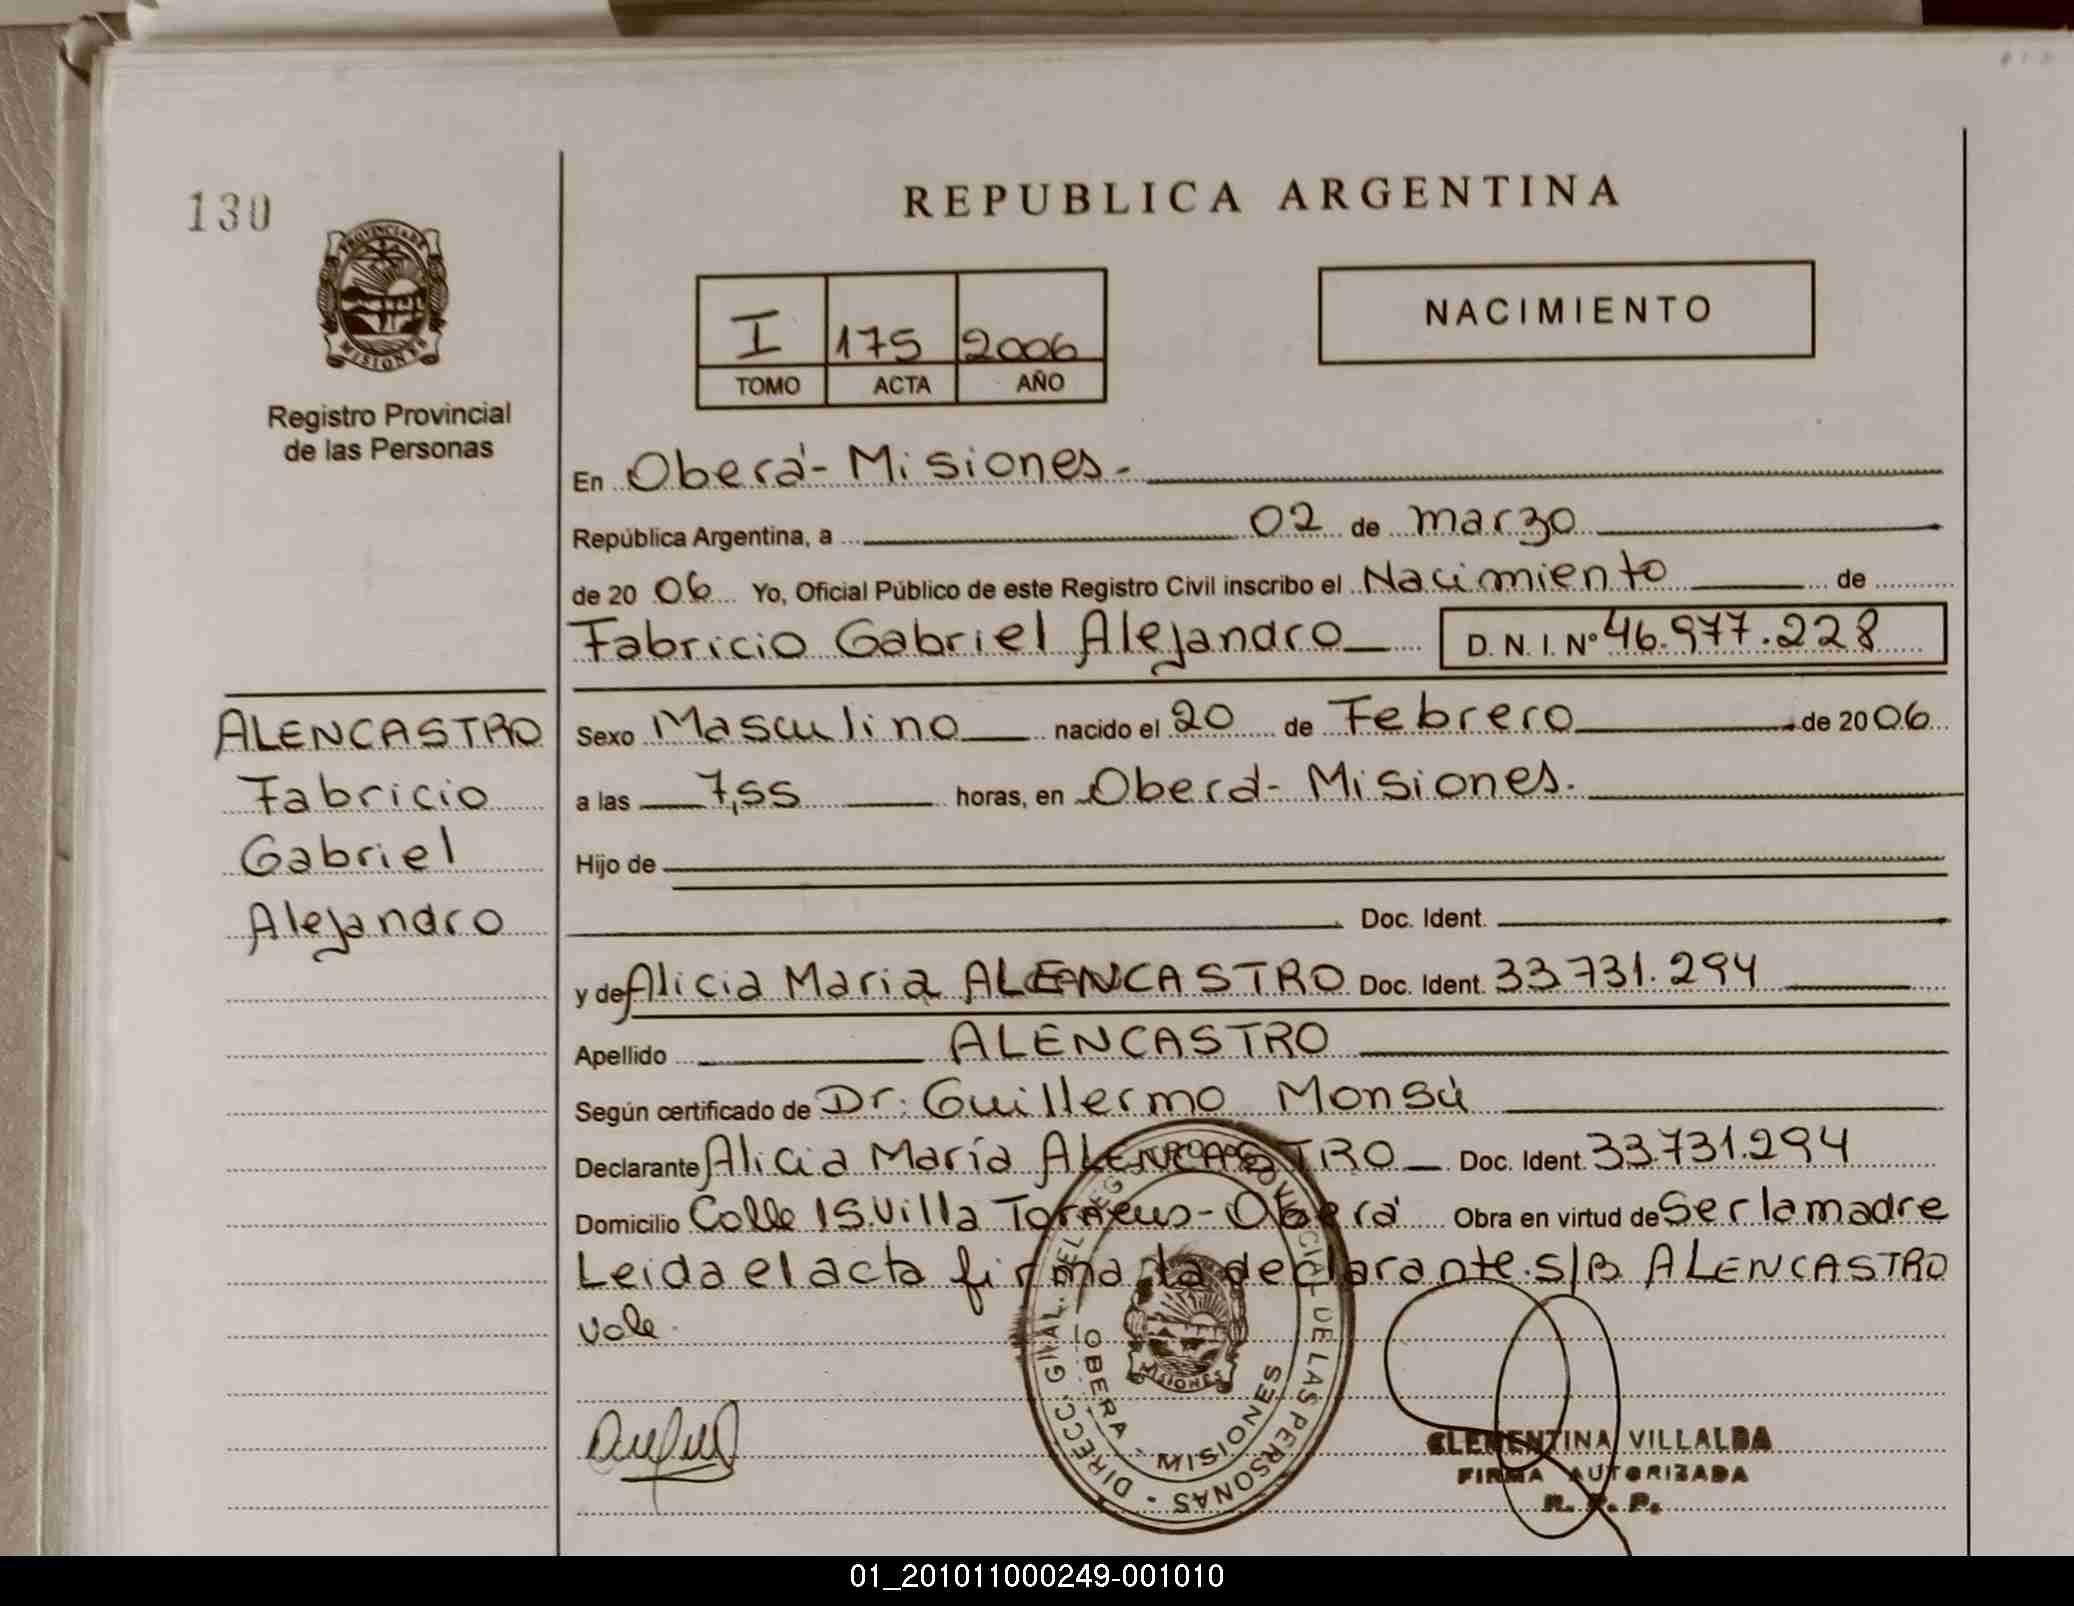 130
REPUBLICA ARGENTINA
PROVINCIA DE
MISIONES
Registro Provincial
de las Personas
I 175 2006
TOMO ACTA AÑO
NACIMIENTO
En Oberá - Misiones.-
República Argentina, a 02 de marzo
de 20 06 Yo, Oficial Público de este Registro Civil inscribo el Nacimiento de
Fabricio Gabriel Alejandro D. N. I. Nº 46.977.228
ALENCASTRO
Fabricio
Gabriel
Alejandro
Sexo Masculino nacido el 20 de Febrero de 20 06
a las 7,55 horas, en Oberá - Misiones.
Hijo de
Doc. Ident.
y de Alicia Maria ALENCASTRO Doc. Ident. 33.731.294
Apellido ALENCASTRO
Según certificado de Dr. Guillermo Monsú
Declarante Alicia María ALENCASTRO Doc. Ident. 33.731.294
Domicilio Calle 15.Villa - Oberá Obra en virtud de Ser la madre
Leida el acta firma la declarante. S/B ALENCASTRO
vale.
DIRECC. GRAL. DEL REG. PROVINCIAL DE LAS PERSONAS -
OBERA - MISIONES
MISIONES
CLEMENTINA VILLALBA
FIRMA AUTORIZADA
R. P. P.
01_201011000249-001010